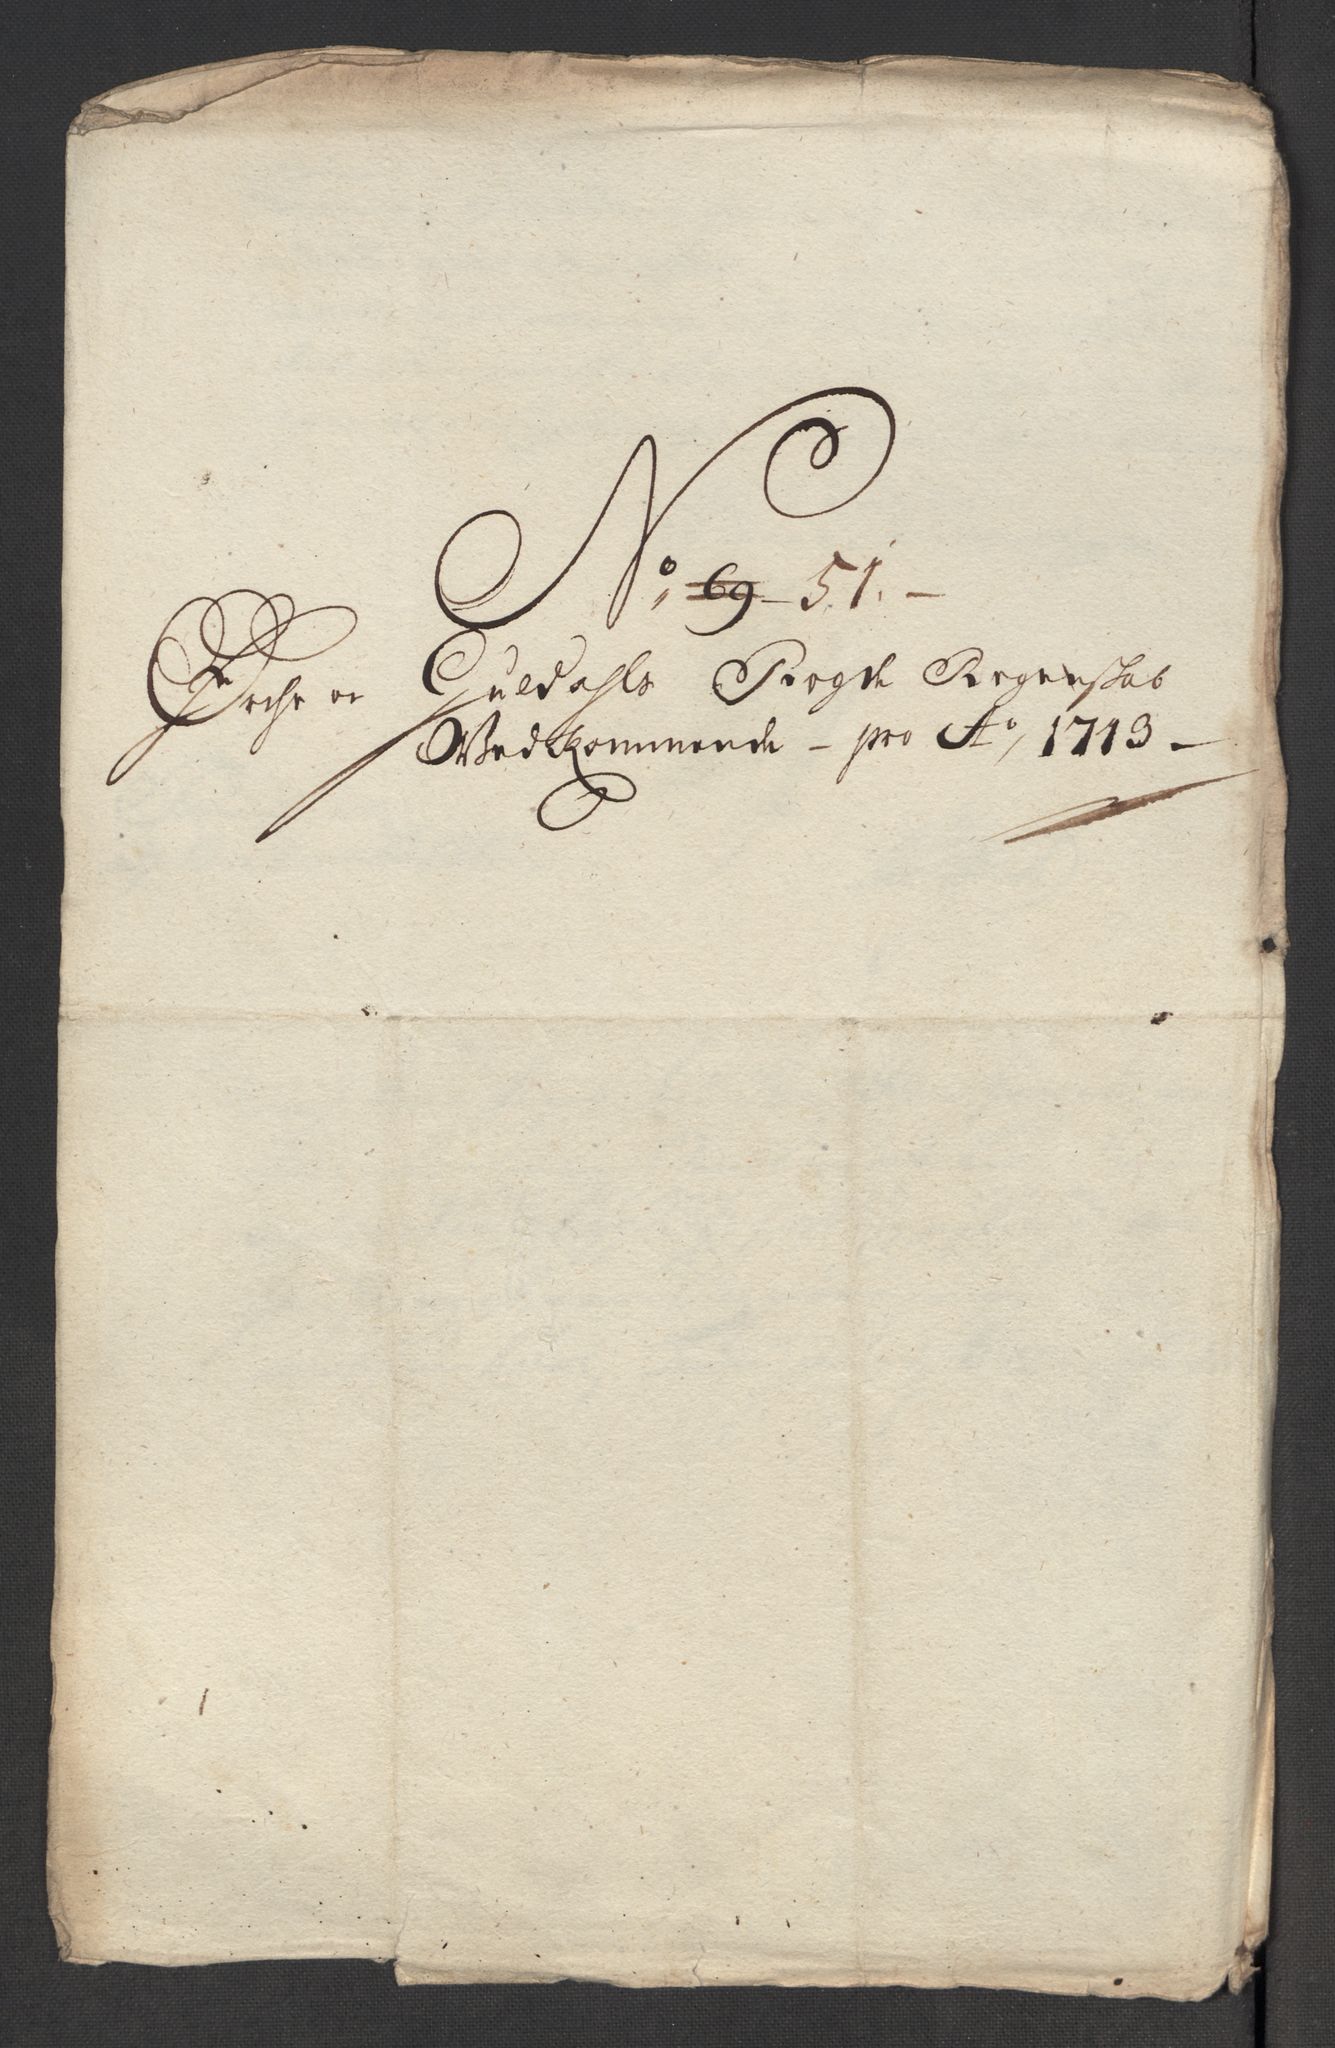 No 69 51.
Ørche or Guldahls Fogde Regenskab
Vedkommende - pro Ao 1713 -